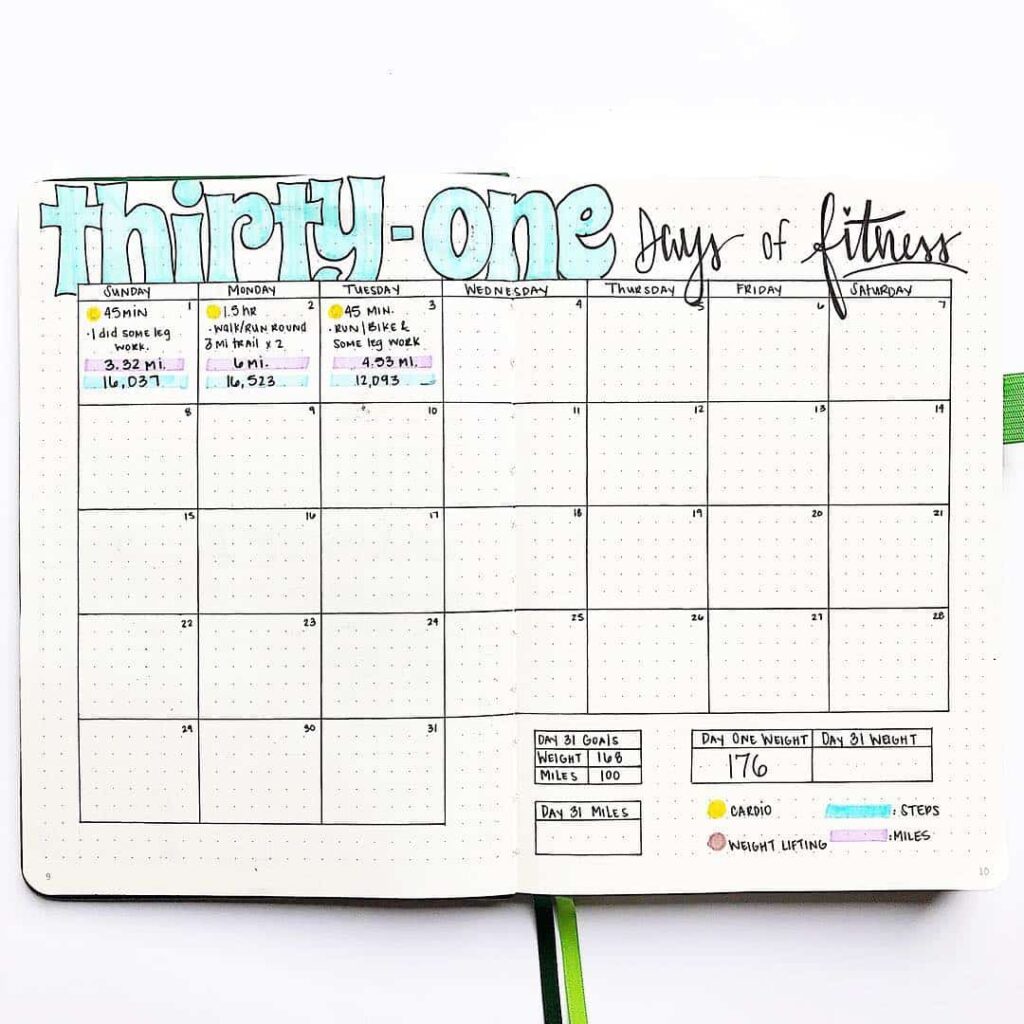 thirty-one Days of fitness
SUNDAY MONDAY TUESDAY WEDNESDAY THURSDAY FRIDAY SATURDAY
1 2 3 4 5 6 7
45 MIN
· I DID SOME LEG
WORK.
3.32 MI.
16,037
1.5 HR
· WALK/RUN ROUND
3 MI TRAIL x 2
6 MI.
16,523
45 MIN.
· RUN/BIKE &
SOME LEG WORK
4.53 MI.
12,093
8 9 10 11 12 13 14
15 16 17 18 19 20 21
22 23 24 25 26 27 28
29 30 31
DAY 31 GOALS
WEIGHT 168
MILES 100
DAY 31 MILES
DAY ONE WEIGHT DAY 31 WEIGHT
176
CARDIO
: STEPS
WEIGHT LIFTING
: MILES
9
10